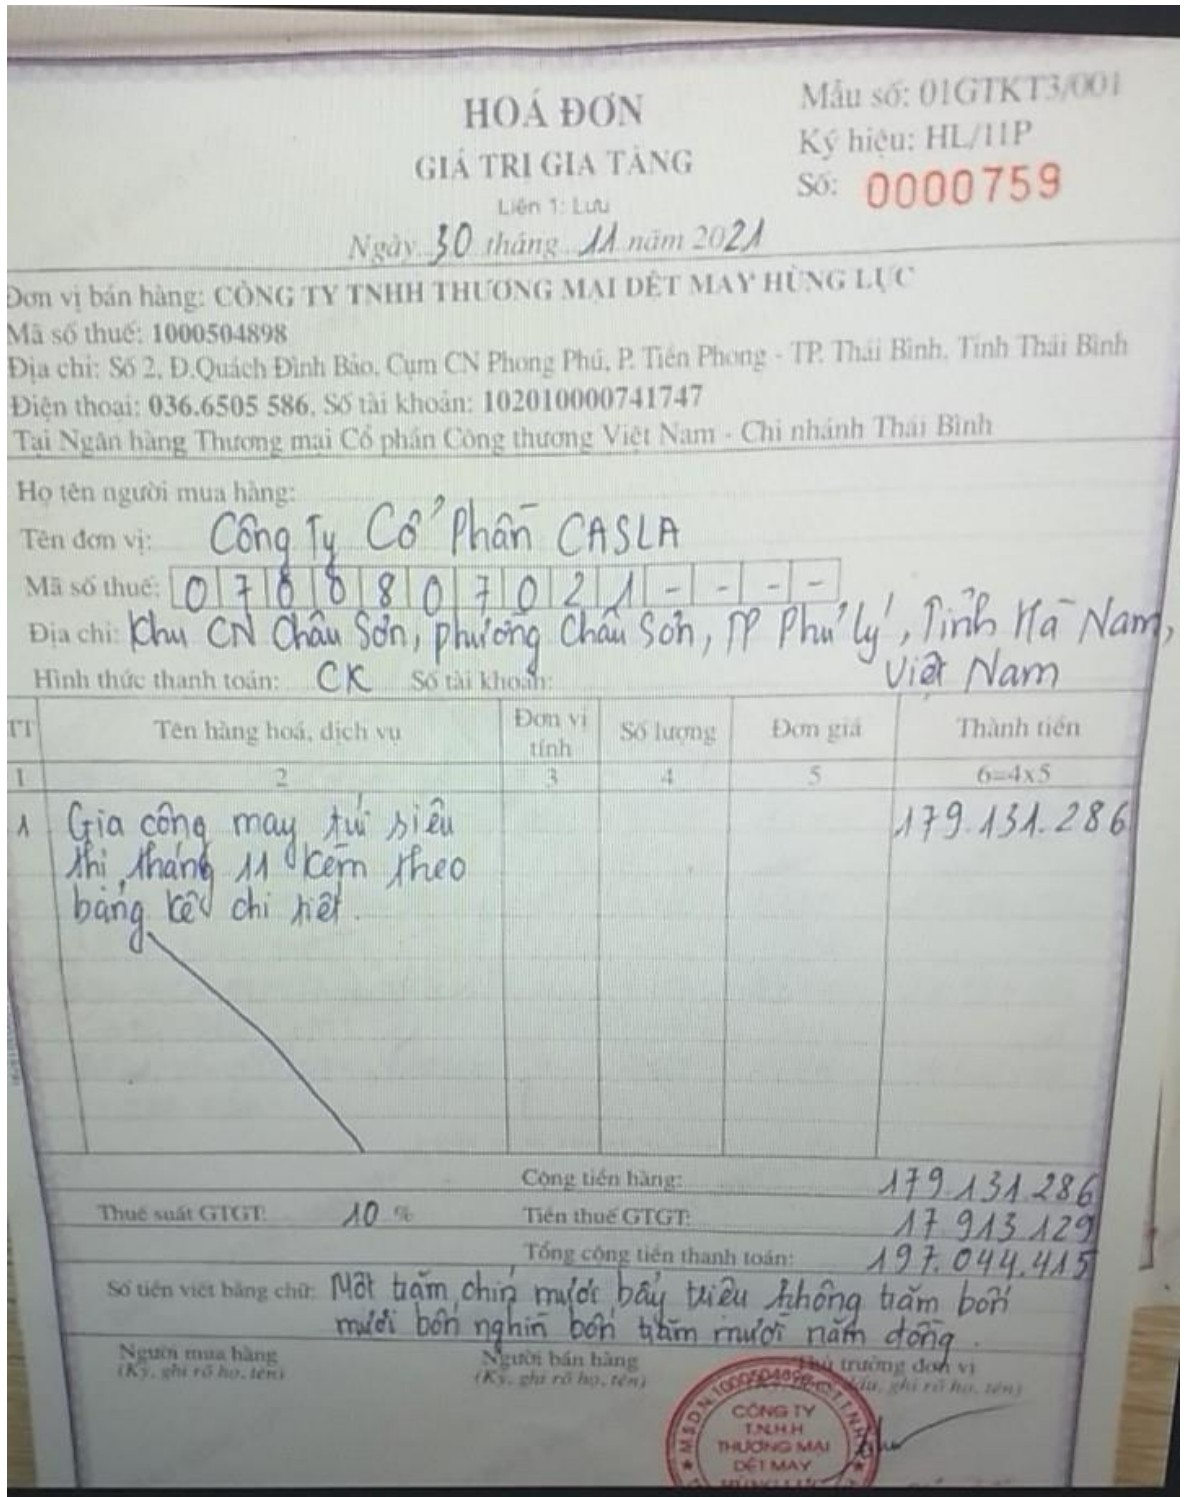 HOÁ ĐƠN
GIÁ TRỊ GIA TĂNG
Liên 1: Lưu
Ngày 30 tháng 11 năm 2021
Mẫu số: 01GTKT3/001
Ký hiệu: HL/11P
Số: 0000759
Đơn vị bán hàng: CÔNG TY TNHH THƯƠNG MẠI DỆT MAY HÙNG LỰC
Mã số thuế: 1000504898
Địa chỉ: Số 2, Đ.Quách Đình Bảo, Cụm CN Phong Phú, P. Tiền Phong - TP. Thái Bình, Tỉnh Thái Bình
Điện thoại: 036.6505 586, Số tài khoản: 102010000741747
Tại Ngân hàng Thương mại Cổ phần Công thương Việt Nam - Chi nhánh Thái Bình
Họ tên người mua hàng:
Tên đơn vị: Công Ty Cổ Phần CASLA
Mã số thuế: 0700807021 - - - -
Địa chỉ: Khu CN Châu Sơn, phường Châu Sơn, TP Phủ Lý, Tỉnh Hà Nam,
Việt Nam
Hình thức thanh toán: CK Số tài khoản:
TT Tên hàng hoá, dịch vụ Đơn vị tính Số lượng Đơn giá Thành tiền
1 2 3 4 5 6=4x5
1 Gia công may túi siêu 179.131.286
thị tháng 11 kèm theo
bảng kê chi tiết.
Cộng tiền hàng: 179.131.286
Thuế suất GTGT: 10 % Tiền thuế GTGT: 17.913.129
Tổng cộng tiền thanh toán: 197.044.415
Số tiền viết bằng chữ: Một trăm chín mươi bảy triệu không trăm bốn
mươi bốn nghìn bốn trăm mười năm đồng.
Người mua hàng Người bán hàng Thủ trưởng đơn vị
(Ký, ghi rõ họ, tên) (Ký, ghi rõ họ, tên) dấu, ghi rõ họ, tên)
M.S.D.N:1000504898-C.T.T.N.H
CÔNG TY
T.N.H.H
THƯƠNG MẠI
DỆT MAY
HÙNG LỰC